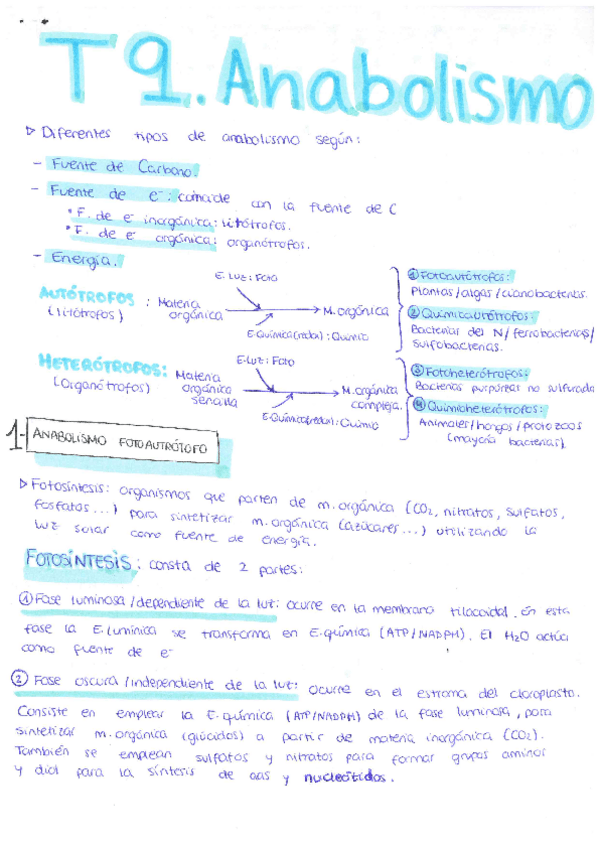 T9. Anabolismo
▷ Diferentes tipos de anabolismo según:
- Fuente de Carbono.
- Fuente de e⁻: coincide con la fuente de C
• F. de e⁻ inorgánica: litótrofos.
• F. de e⁻ orgánica: organótrofos.
- Energía.
AUTÓTROFOS (litótrofos) : Materia orgánica
E. Luz: Foto
E. Química (redox): Quimio
M. orgánica
① Fotoautótrofos:
Plantas/algas/cianobacterias.
② Quimioautótrofos:
Bacterias del N/ferrobacterias/
sulfobacterias.
HETERÓTROFOS: (Organótrofos) Materia orgánica sencilla
E. Luz: Foto
E. Química (redox): Quimio
M. orgánica compleja.
③ Fotoheterótrofos:
Bacterias purpúreas no sulfurada
④ Quimioheterótrofos:
Animales/hongos/protozoos
(mayoría bacterias).
1- ANABOLISMO FOTOAUTRÓTOFO
▷ Fotosíntesis: organismos que parten de m. orgánica (CO₂, nitratos, sulfatos,
fosfatos...) para sintetizar m. orgánica (azúcares...) utilizando la
luz solar como fuente de energía.
FOTOSÍNTESIS: consta de 2 partes:
① Fase luminosa/dependiente de la luz: ocurre en la membrana tilacoidal. En esta
fase la E. lumínica se transforma en E. química (ATP/NADPH). El H₂O actúa
como fuente de e⁻
② Fase oscura/independiente de la luz: ocurre en el estroma del cloroplasto.
Consiste en emplear la E. química (ATP/NADPH) de la fase luminosa, para
sintetizar m. orgánica (glúcidos) a partir de materia inorgánica (CO₂).
También se emplean sulfatos y nitratos para formar grupos aminos
y diol para la síntesis de aas y nucleótidos.